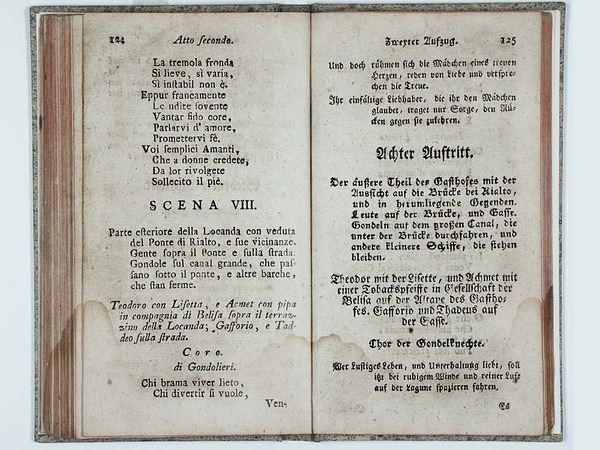 124 Atto secondo.
La tremola fronda
Sì lieve, sì varia,
Sì instabil non è.
Eppur francamente
Le udite sovente
Vantar fido core,
Parlarvi d' amore,
Promettervi fè.
Voi semplici Amanti,
Che a donne credete,
Da lor rivolgete
Sollecito il piè.
SCENA VIII.
Parte esteriore della Locanda con veduta
del Ponte di Rialto, e sue vicinanze.
Gente sopra il Ponte e sulla strada.
Gondole sul canal grande, che pas-
sano sotto il ponte, e altre barche,
che stan ferme.
Teodoro con Lisetta, e Acmet con pipa
in compagnia di Belisa sopra il terraz-
zino della Locanda; Gafforio, e Tad-
deo sulla strada.
Coro.
di Gondolieri.
Chi brama viver lieto,
Chi divertir si vuole,
Ven-
Zweyter Aufzug. 125
Und doch rühmen sich die Mädchen eines treuen
Herzen, reden von Liebe und verspre-
chen die Treue.
Ihr einfältige Liebhaber, die ihr den Mädchen
glaubet, traget nur Sorge, den Rü-
cken gegen sie zukehren.
Achter Auftritt.
Der äußere Theil des Gasthofes mit der
Aussicht auf die Brücke bei Rialto,
und in herumliegende Gegenden.
Leute auf der Brücke, und Gasse.
Gondeln auf dem großen Canal, die
unter der Brücke durchfahren, und
andere kleinere Schiffe, die stehen
bleiben.
Theodor mit der Lisette, und Achmet mit
einer Tobackspfeiffe in Gesellschaft der
Belisa auf der Altane des Gastho-
fes. Gafforio und Thadeus auf
der Gasse.
Chor der Gondelknechte.
Wer lustiges Leben, und Unterhaltung liebt, soll
itzt bei ruhigem Winde und reiner Luft
auf der Lagune spazieren fahren.
Es